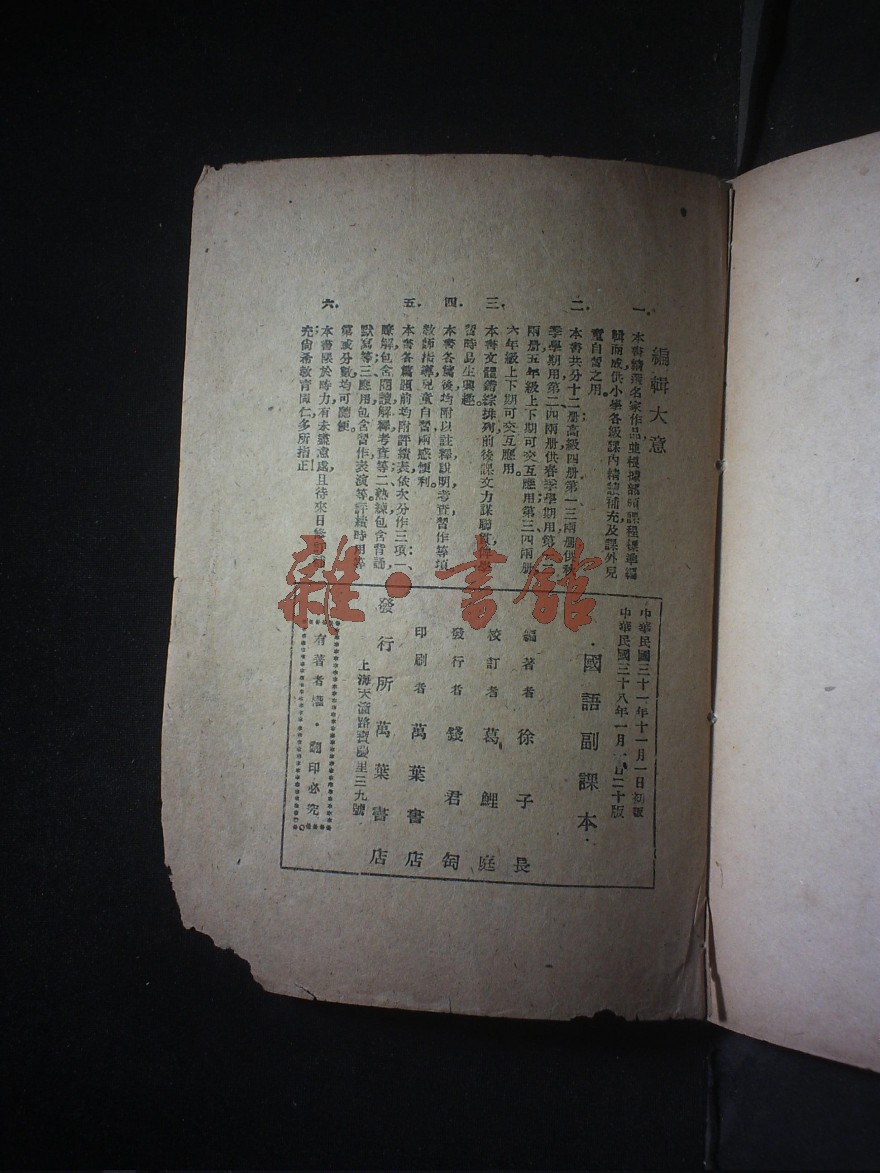 編輯大意
一、本書精選名家作品並根據部頒課程標準編
輯而成供小學各級課內精讀補充及課外兒
童自習之用。
二、本書共分十二册高級四册第一三兩册供秋
季學期用第二四兩册供春季學期用第一二
兩册五年級上下期可交互應用第三四兩册
六年級上下期可交互應用。
三、本書文體錯綜排列前後課文力謀聯貫俾學
習時易生興趣。
四、本書各篇後均附以註釋說明考查習作等項
教師指導兒童自習兩感便利。
五、本書各篇題前均附評績表依次分作三項：一、
瞭解包含閱讀解釋考查等二、熟練包含背誦，
默寫等三、應用包含習作表演等評績時用等
第或分數均可聽便。
六、本書限於時力有未盡意處且待來日
充尚希教育同仁多所指正！
中華民國三十一年十一月一日初版
中華民國三十八年一月 二十版
·國語副課本·
編著者 徐子長
校訂者 葛鯉庭
發行者 錢君匋
印刷者 萬葉書店
發行所 萬葉書店
上海天潼路寶慶里三九號
有著者權·翻印必究
雜·書館